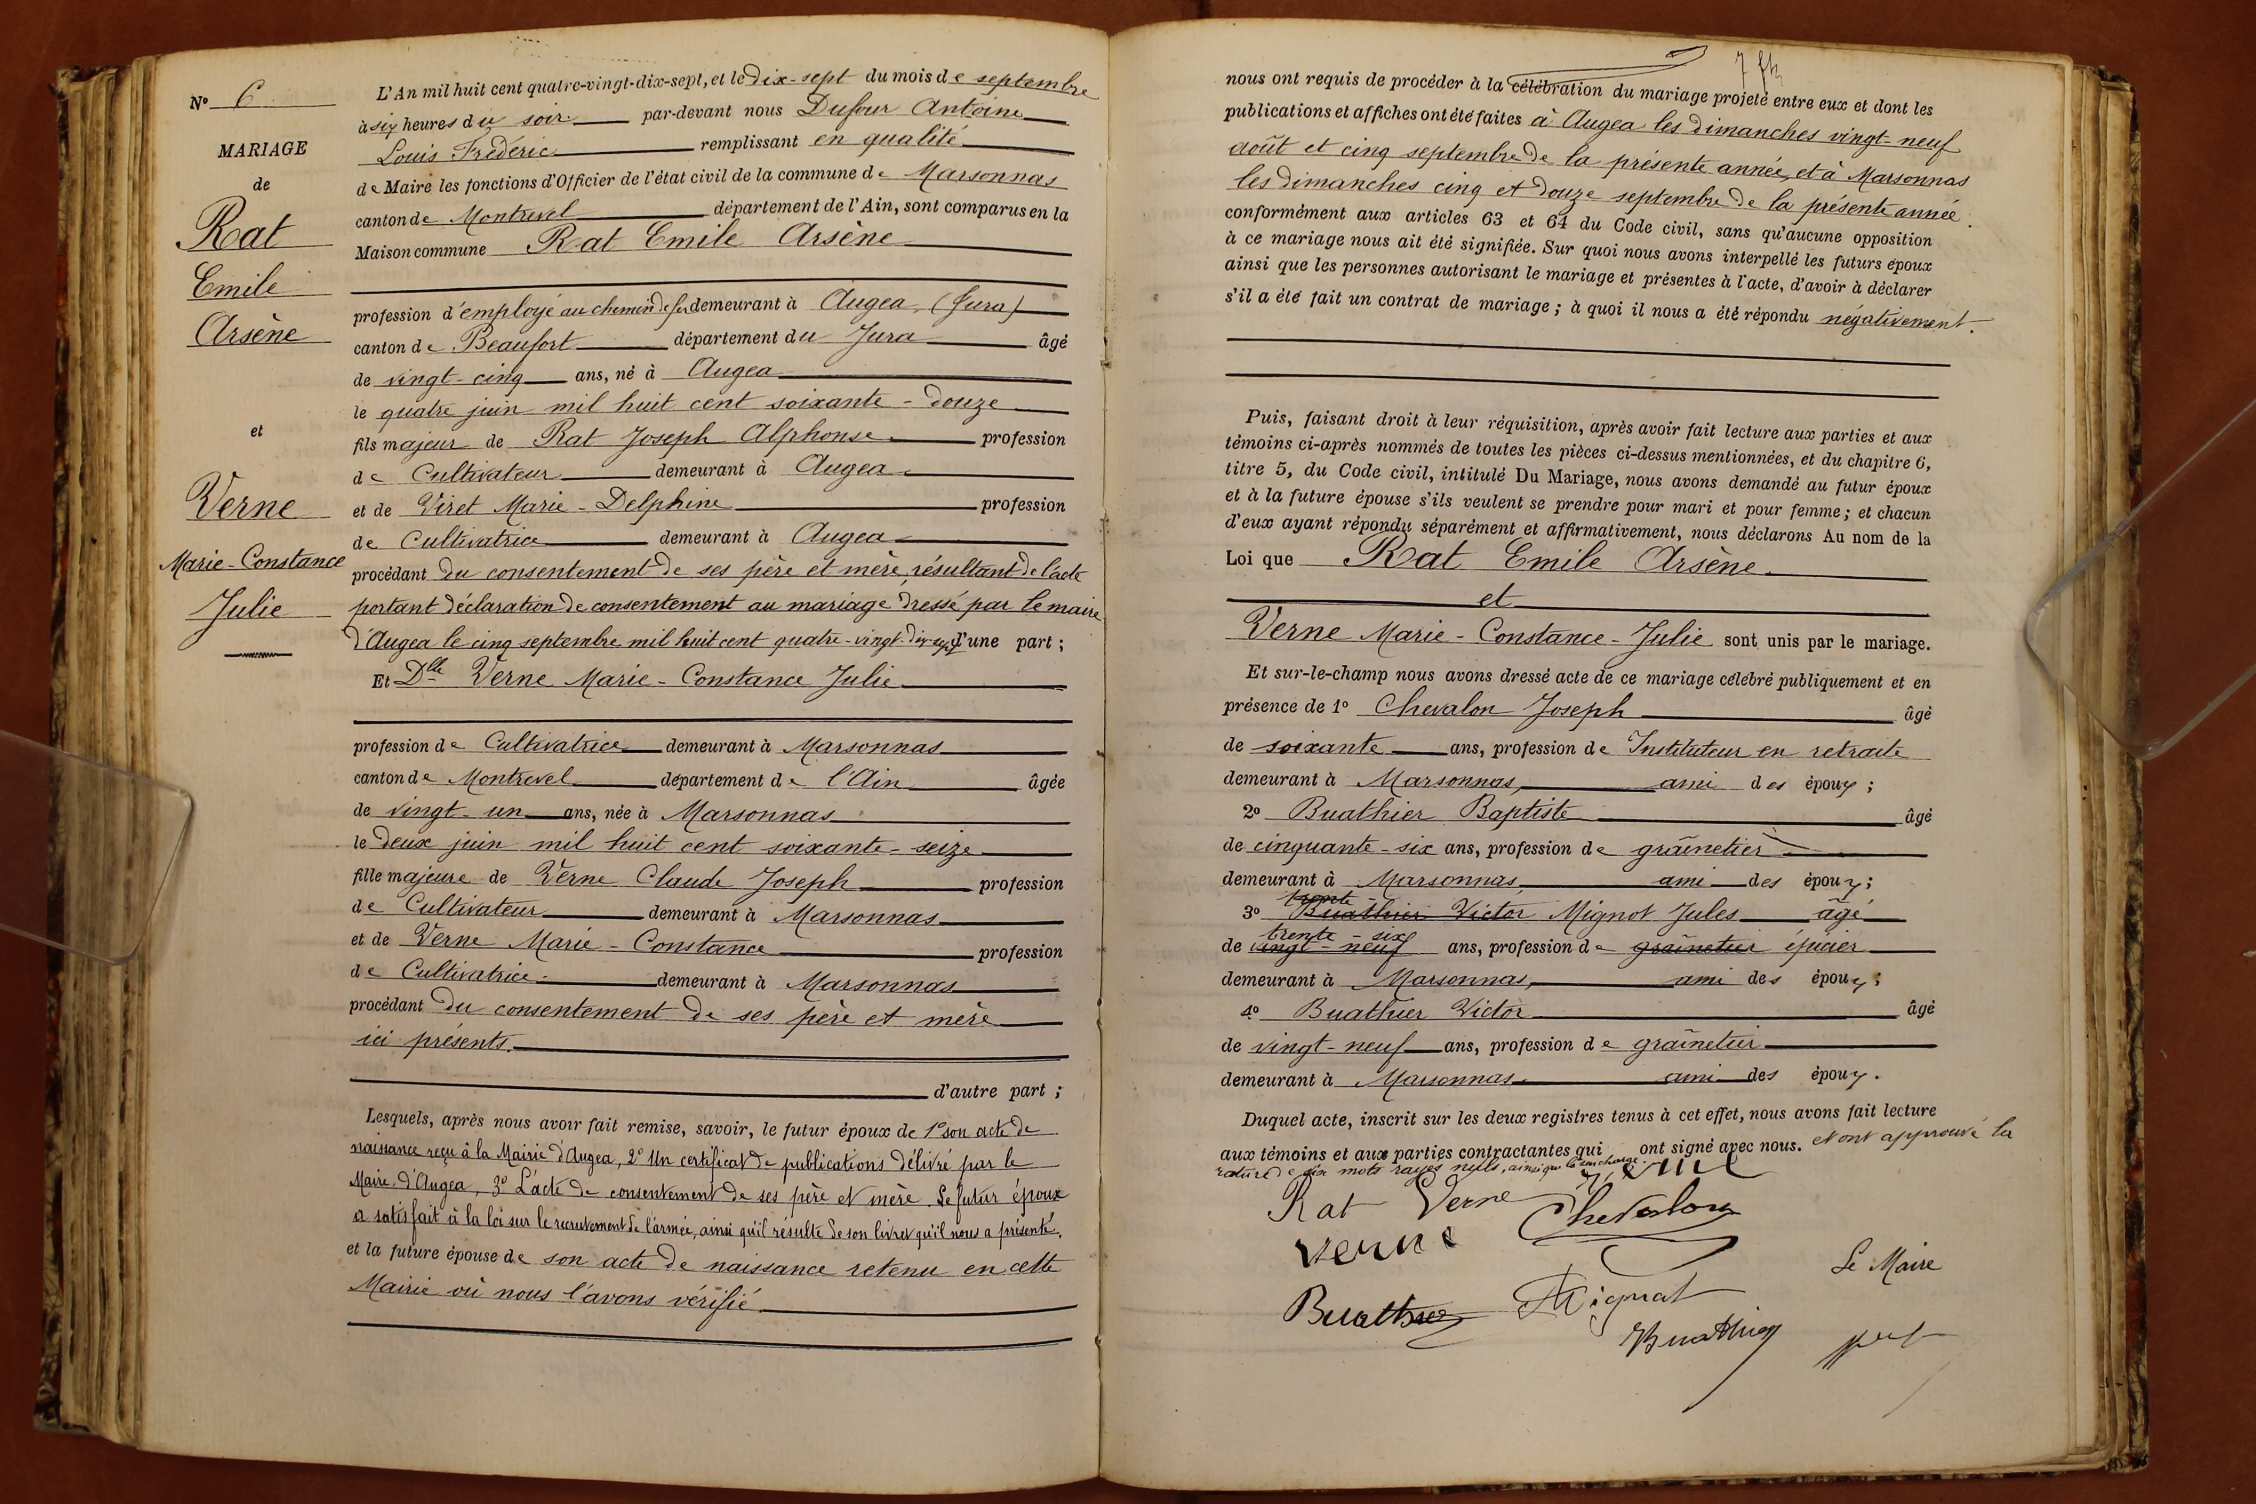 N° 6
MARIAGE
de
Rat
Emile
Arsène
et
Verne
Marie-Constance
Julie
L'An mil huit cent quatre-vingt-dix-sept, et le Dix-sept du mois de septembre
à six heures du soir par-devant nous Dufour Antoine
Louis Frédéric remplissant en qualité
de Maire les fonctions d'Officier de l'état civil de la commune de Marsonnas
canton de Montrevel département de l'Ain, sont comparus en la
Maison commune Rat Emile Arsène
profession d'employé au chemin de fer demeurant à Augea (Jura)
canton de Beaufort département du Jura âgé
de vingt-cinq ans, né à Augea
le quatre juin mil huit cent soixante-douze
fils majeur de Rat Joseph Alphonse profession
de Cultivateur demeurant à Augea
et de Viret Marie-Delphine profession
de Cultivatrice demeurant à Augea
procédant du consentement de ses père et mère, résultant de l'acte
portant déclaration de consentement au mariage dressé par le maire
d'Augea le cinq septembre mil huit cent quatre-vingt-dix-sept d'une part ;
Et Dlle Verne Marie-Constance Julie
profession de Cultivatrice demeurant à Marsonnas
canton de Montrevel département de l'Ain âgée
de vingt-un ans, née à Marsonnas
le deux juin mil huit cent soixante-seize
fille majeure de Verne Claude Joseph profession
de Cultivateur demeurant à Marsonnas
et de Verne Marie-Constance profession
de Cultivatrice demeurant à Marsonnas
procédant du consentement de ses père et mère
ici présents.
d'autre part ;
Lesquels, après nous avoir fait remise, savoir, le futur époux de 1° son acte de
naissance reçu à la Mairie d'Augea, 2° Un certificat de publications délivré par le
Maire d'Augea, 3° L'acte de consentement de ses père et mère. Le futur époux
a satisfait à la loi sur le recrutement de l'armée, ainsi qu'il résulte de son livret qu'il nous a présenté.
et la future épouse de son acte de naissance retenu en cette
Mairie où nous l'avons vérifié
nous ont requis de procéder à la célébration du mariage projeté entre eux et dont les
publications et affiches ont été faites à Augea les dimanches vingt-neuf
août et cinq septembre de la présente année, et à Marsonnas
les dimanches cinq et douze septembre de la présente année.
conformément aux articles 63 et 64 du Code civil, sans qu'aucune opposition
à ce mariage nous ait été signifiée. Sur quoi nous avons interpellé les futurs époux
ainsi que les personnes autorisant le mariage et présentes à l'acte, d'avoir à déclarer
s'il a été fait un contrat de mariage ; à quoi il nous a été répondu négativement.
Puis, faisant droit à leur réquisition, après avoir fait lecture aux parties et aux
témoins ci-après nommés de toutes les pièces ci-dessus mentionnées, et du chapitre 6,
titre 5, du Code civil, intitulé Du Mariage, nous avons demandé au futur époux
et à la future épouse s'ils veulent se prendre pour mari et pour femme ; et chacun
d'eux ayant répondu séparément et affirmativement, nous déclarons Au nom de la
Loi que Rat Emile Arsène
et
Verne Marie-Constance-Julie sont unis par le mariage.
Et sur-le-champ nous avons dressé acte de ce mariage célébré publiquement et en
présence de 1° Chevalon Joseph âgé
de soixante ans, profession de Instituteur en retraite
demeurant à Marsonnas, ami des époux ;
2° Buathier Baptiste âgé
de cinquante-six ans, profession de grainetier
demeurant à Marsonnas ami des époux ;
trente
3° Buathier Victor Mignot Jules âgé
trente-six
de vingt-neuf ans, profession de grainetier épicier
demeurant à Marsonnas, ami des époux ;
4° Buathier Victor âgé
de vingt-neuf ans, profession de grainetier
demeurant à Marsonnas ami des époux.
Duquel acte, inscrit sur les deux registres tenus à cet effet, nous avons fait lecture
aux témoins et aux parties contractantes qui ont signé avec nous. et ont approuvé la
rature de six mots rayés nuls, ainsi que la surcharge.
Rat Verne Chevalon
Verne
Le Maire
Buathier Mignot
Buathier